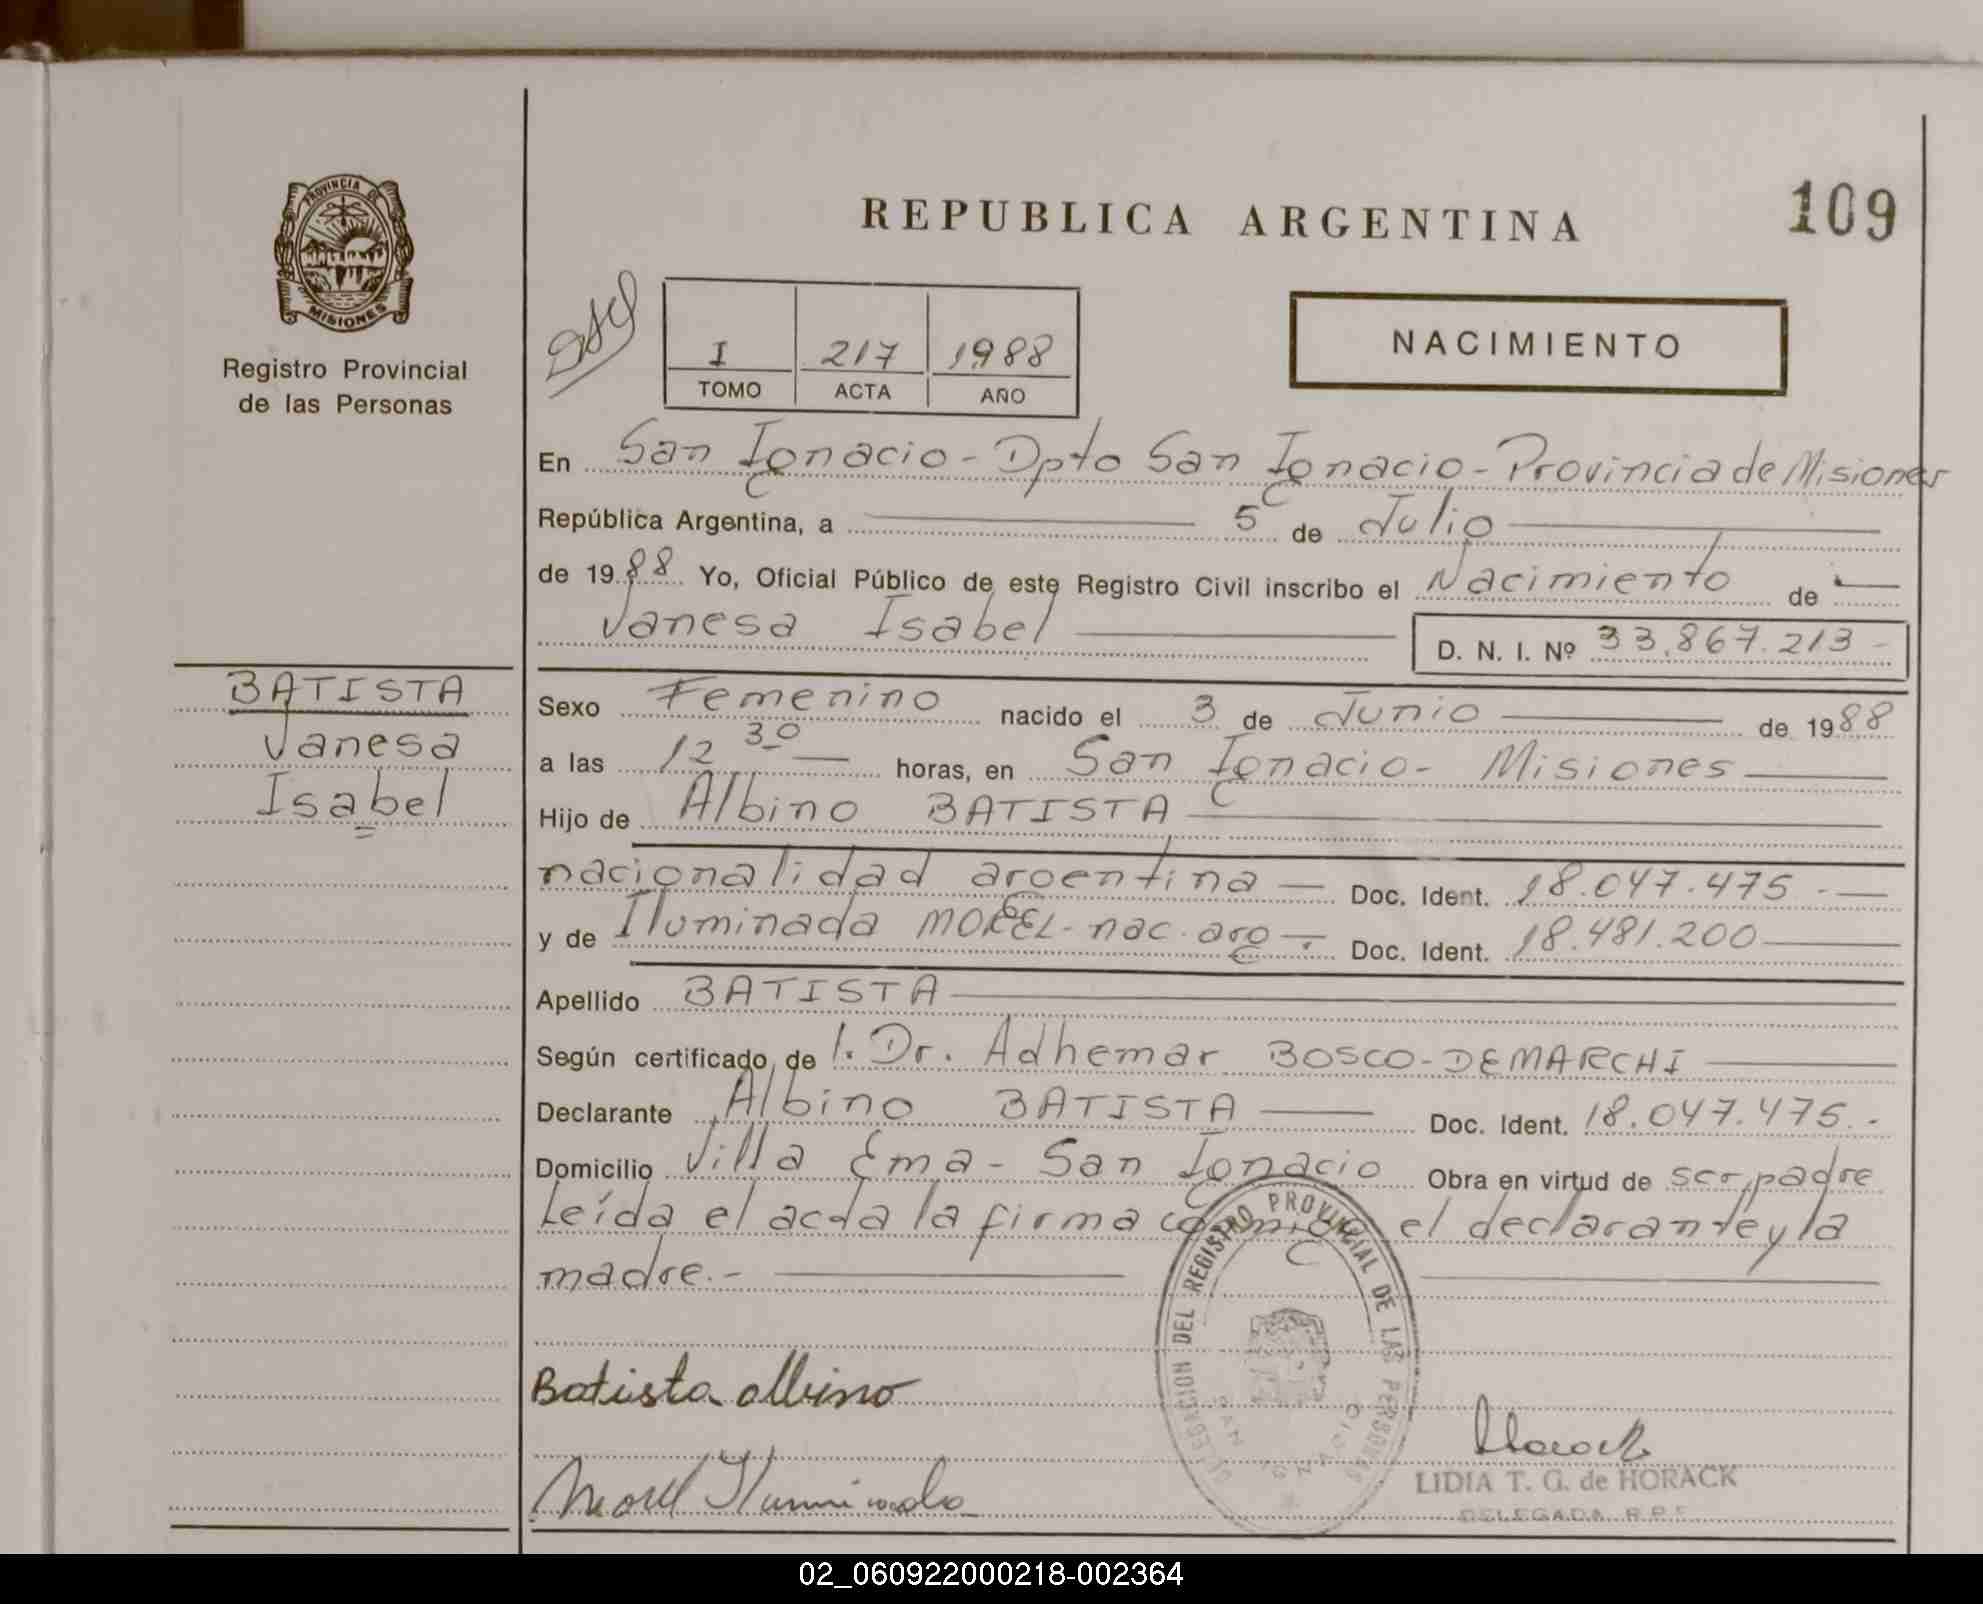 REPUBLICA ARGENTINA
109
PROVINCIA DE
MISIONES
Registro Provincial
de las Personas
I 217 1988
TOMO ACTA AÑO
NACIMIENTO
En San Ignacio - Dpto San Ignacio - Provincia de Misiones
República Argentina, a 5 de Julio
de 1988 Yo, Oficial Público de este Registro Civil inscribo el Nacimiento de
Vanesa Isabel D. N. I. Nº 33.867.213 -
BATISTA
Vanesa
Isabel
Sexo Femenino nacido el 3 de Junio de 1988
a las 12 30 horas, en San Ignacio - Misiones
Hijo de Albino BATISTA
nacionalidad argentina — Doc. Ident. 18.047.475 . -
y de Iluminada MOREL - nac. arg - . Doc. Ident. 18.481.200
Apellido BATISTA
Según certificado de 1. Dr. Adhemar BOSCO - DEMARCHI
Declarante Albino BATISTA Doc. Ident. 18.047.475. -
Domicilio Villa Ema - San Ignacio Obra en virtud de ser padre
Leída el acta la firma conmigo el declarante y la
madre. -
DELEGACION DEL REGISTRO PROVINCIAL DE LAS PERSONAS
SAN IGNACIO
Batista albino
Morel Iluminada
Horack
LIDIA T. G. de HORACK
DELEGADA R.P.P.
02_060922000218-002364